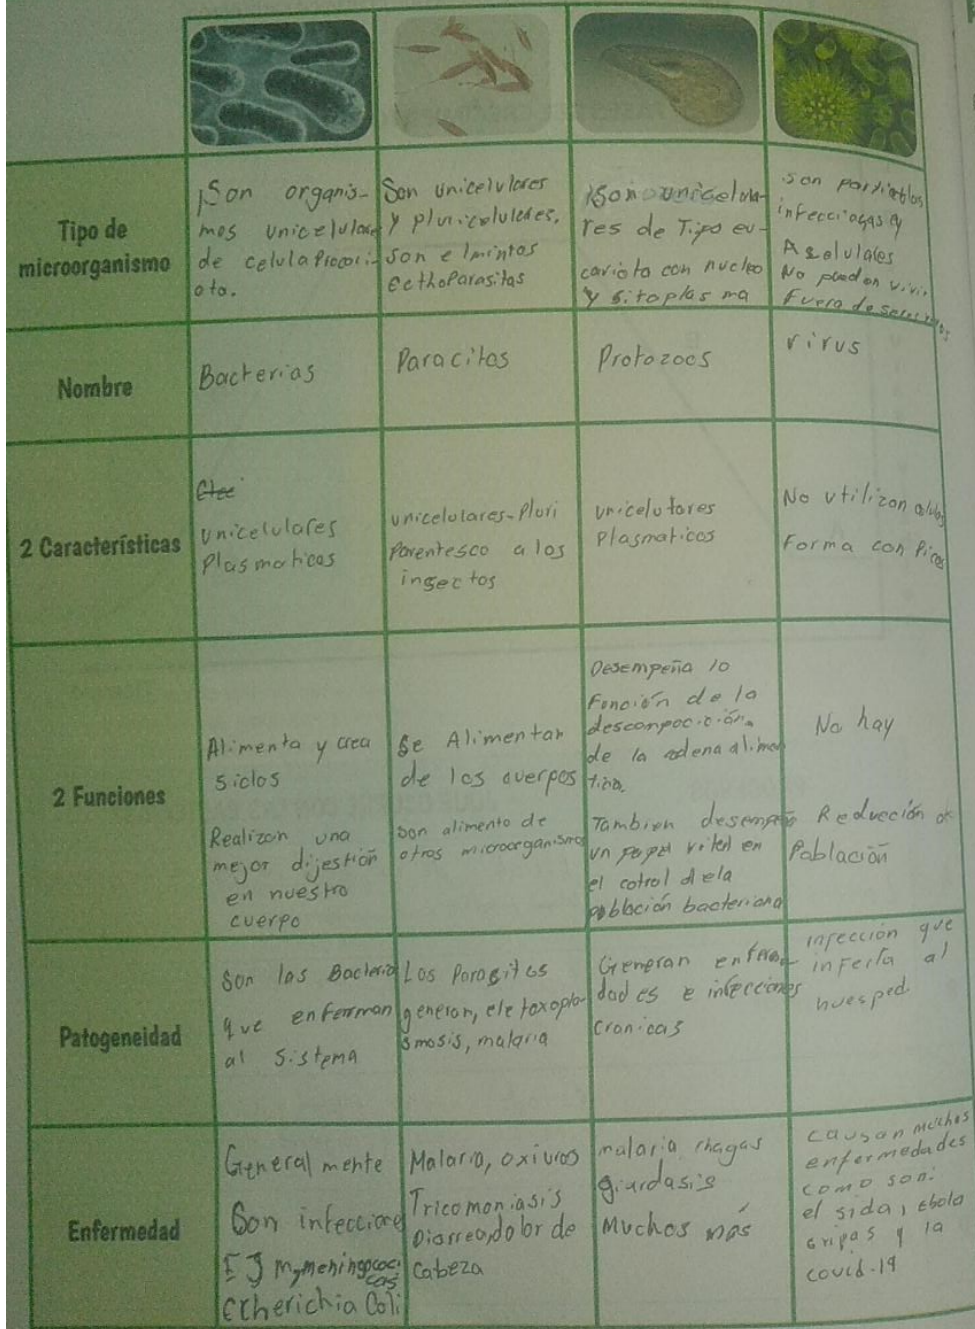 Tipo de
microorganismo
¡Son organis-
mos unicelulares
de celula Procari-
oto.
Son unicelulares
y pluricelulares,
son elmintos
ecthoParasitas
¡Son unicelula-
res de Tipo eu-
carioto con nucleo
y sitoplasma
son
infecciosas y
Acelulares
No pueden vivir
Fuera de seres vivos
Nombre
Bacterias
Paracitos
Protozoos
virus
2 Características
unicelulares
Plasmaticas
unicelulares-Pluri
Parentesco a los
insectos
unicelulares
Plasmaticos
No utilizan celulas
Forma con Picos
2 Funciones
Alimenta y crea
siclos
Realizan una
mejor dijestión
en nuestro
cuerpo
Se Alimentan
de los cuerpos
son alimento de
otros microorganismos
Desempeña lo
Función de la
descompocición
de la cadena alimen
ticia.
Tambien desempeña
un papel vital en
el cotrol de la
población bacteriana
No hay
Reducción de
Población
Patogeneidad
Son las Bacteria
que enferman
al sistema
Los Parasitos
generan, ele toxoplo-
smosis, malaria
Generan enferme-
dades e infecciones
cronicas
infección que
infecta al
huesped
Enfermedad
General mente
Son infecciones
EJ meningococi
cas
Etherichia Coli
Malaria, oxiuros
Tricomoniasis
Diarrea, dolor de
cabeza
malaria chagas
giardasis
Muchos más
causan muchas
enfermedades
como son:
el sida, ebola
gripas y la
covid-19